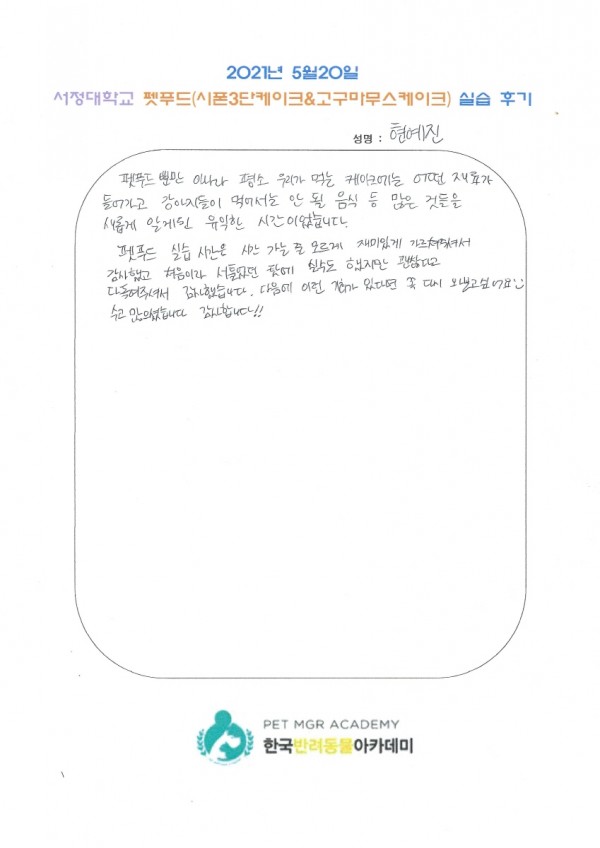 2021년 5월20일
서정대학교 펫푸드(시폰3단케이크&고구마무스케이크) 실습 후기
성명 : 현예진
펫푸드 뿐만 아니라 평소 우리가 먹는 케이크에는 어떤 재료가
들어가고 강아지들이 먹어서는 안 될 음식 등 많은 것들을
새롭게 알게된 유익한 시간이었습니다.
펫푸드 실습 시간은 시간 가는 줄 모르게 재미있게 가르쳐주셔서
감사했고 처음이라 서툴렀던 탓에 실수도 했지만 괜찮다고
다독여주셔서 감사했습니다. 다음에 이런 기회가 있다면 꼭 다시 보내고싶어요
수고 많으셨습니다 감사합니다!!
PET MGR ACADEMY
한국반려동물아카데미